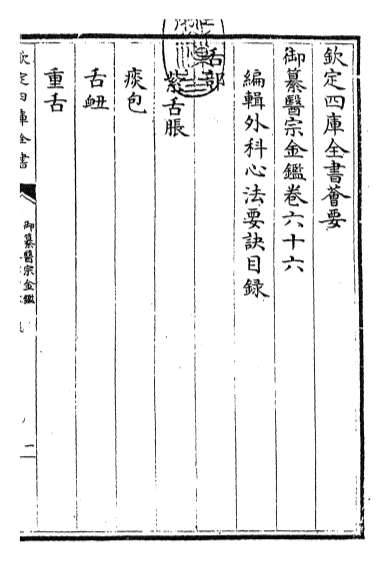 欽定四庫全書薈要
御纂醫宗金鑑卷六十六
編輯外科心法要訣目録
舌部
紫舌脹
痰包
舌衄
重舌
欽定四庫全書
御纂醫宗金鑑